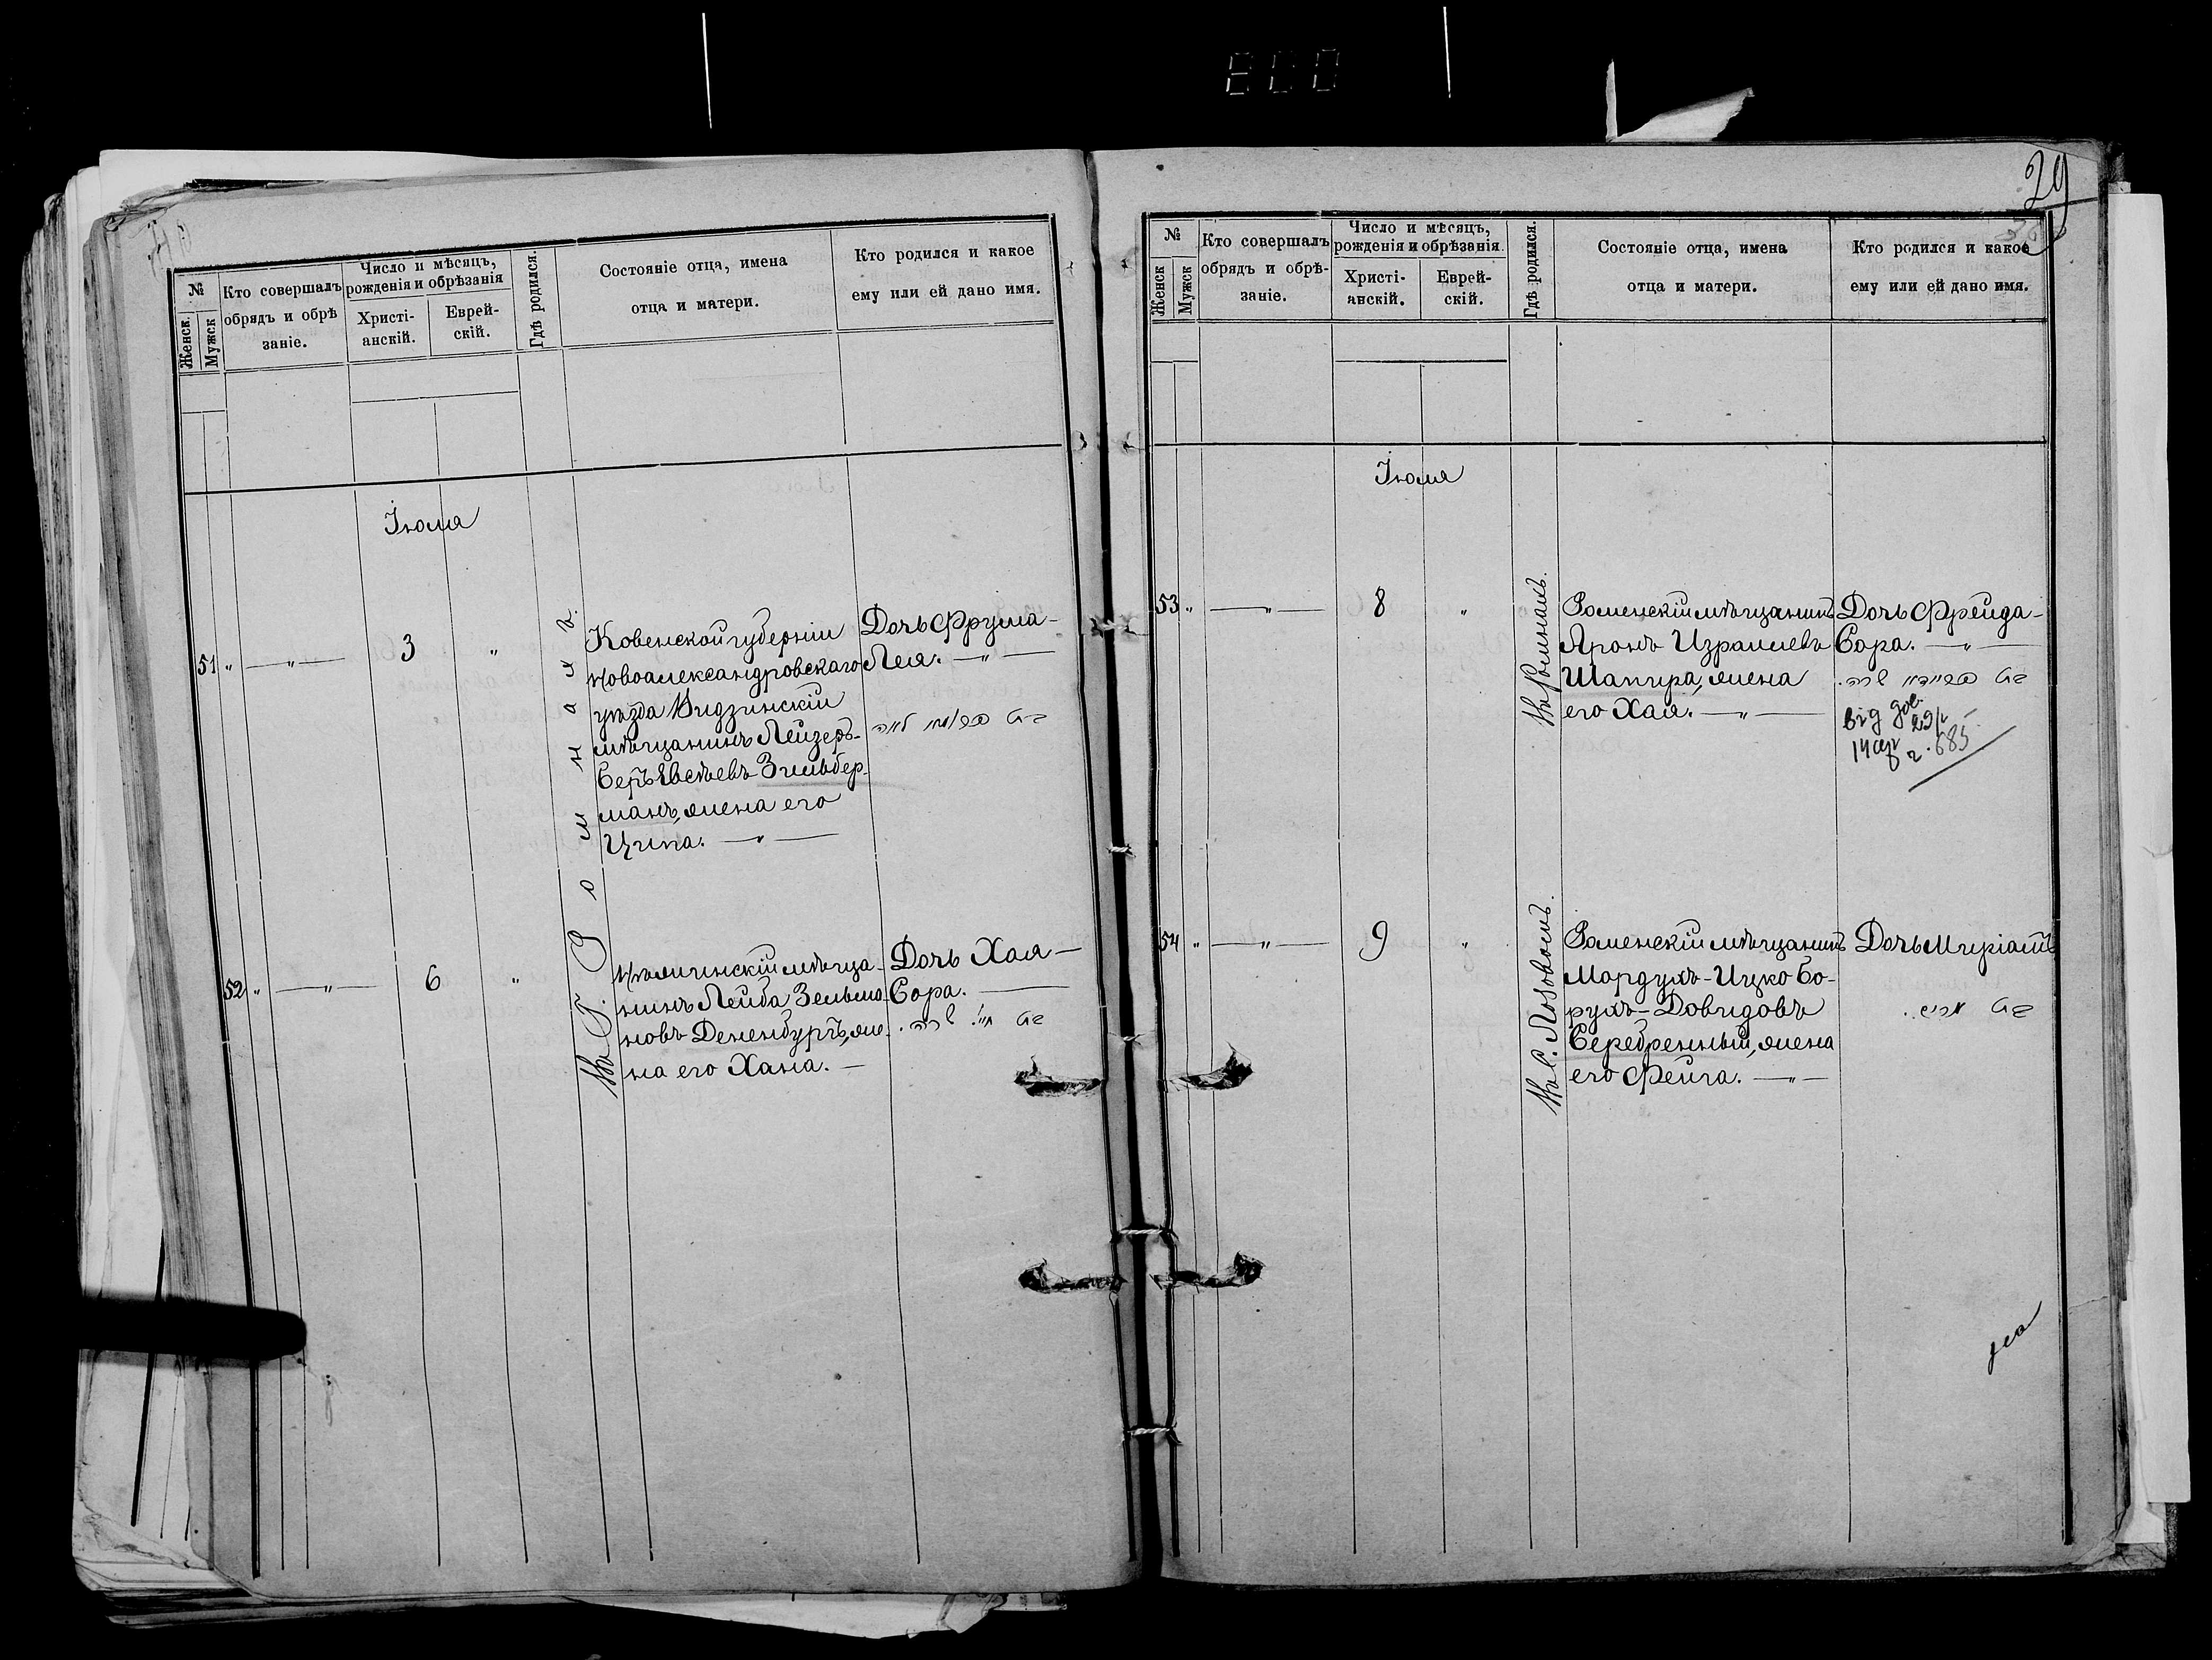 800
№
Женск.
Мужск
Кто совершалъ
обрядъ и обрѣ
заніе.
Число и мѣсяцъ,
рожденія и обрѣзанія
Христі-
анскій.
Еврей-
скій.
Гдѣ родился.
Состояніе отца, имена
отца и матери.
Кто родился и какое
ему или ей дано имя.
Іюля
51 " — " — 3 "
Ковенской губерніи
Новоалександровскаго
уѣзда Видзинскій
мѣщанинъ Лейзеръ-
Беръ Евсѣевъ Зильбер-
манъ, жена его
Ципа. — " —
Дочь Фрума-
Лея. — " —
52 " — " — 6 "
Въ Г. Ромнахъ.
мѣща-
нинъ Лейба Зельма-
новъ Дененбургъ, же-
на его Хана. —
Дочь Хая-
Сора. —
בת חי' שרה.
29
№
Женск
Мужск
Кто совершалъ
обрядъ и обрѣ-
заніе.
Число и мѣсяцъ,
рожденія и обрѣзанія.
Христі-
анскій.
Еврей-
скій.
Гдѣ родился.
Состояніе отца, имена
отца и матери.
Кто родился и какое
ему или ей дано имя.
Іюля
53 " — " — 8 "
Въ Ромнахъ.
Роменскій мѣщанинъ
Аронъ Израилевъ
Шапира, жена
его Хая. — " —
Дочь Фрейда-
Сора. — " —
בת פריידא שרה.
від дов.
14 сер 29 р
г. 685
54 " — " — 9 "
Въ с. Лозовомъ.
Роменскій мѣщанинъ
Мордухъ-Ицко Бо-
рухъ-Довидовъ
Серебренный, жена
его Фейга. — " —
Дочь Миріамъ
בת מרים.